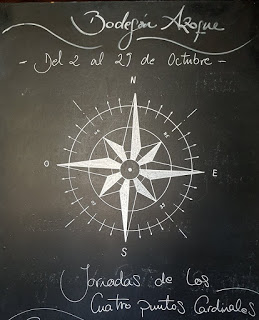 Bodegón Azoque
- Del 2 al 27 de Octubre -
N
O
E
S
Jornadas de los
Cuatro puntos Cardinales